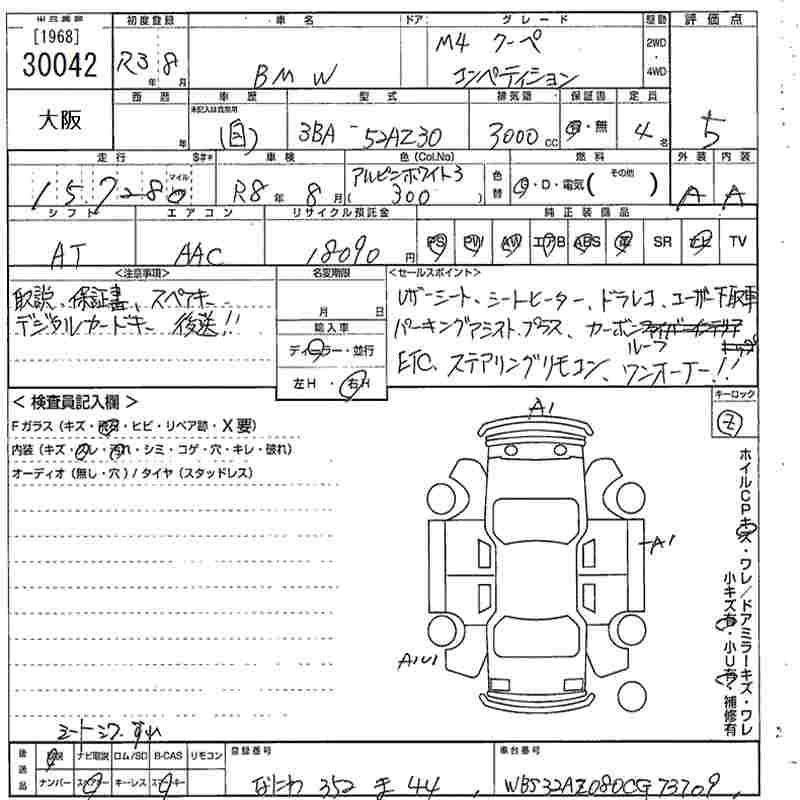 [1968]
30042
大阪
初度登録
R3 年 8 月
車名
BMW
ドア
グレード
M4 クーペ
コンペティション
駆動
2WD
・
4WD
評価点
5
西暦
年
車歴
未記入は自家用
(自)
型式
3BA - 52AZ30
排気量
3000 CC
保証書
有・無
定員
4 名
走行
$#*
マイル
15,728
車検
R8 年 8 月
色 (Col.No)
アルピンホワイト3
( 300 )
色替
燃料
G・D・電気 ( その他 )
外装
A
内装
A
シフト
AT
エアコン
AAC
リサイクル預託金
18090 円
純正装備品
PS PW AW エアB ABS 革 SR ナビ TV
<注意事項>
取説、保証書、スペアキー
デジタルカードキー 後送!!
名変期限
月 日
輸入車
ディーラー・並行
左H・右H
<セールスポイント>
レザーシート、シートヒーター、ドラレコ、ユーザー下取車
パーキングアシストプラス、カーボンファイバーインテリア
ルーフ
トリップ
ETC、ステアリングリモコン、ワンオーナー!!
< 検査員記入欄 >
Fガラス (キズ・飛石・ヒビ・リペア跡・X要)
内装 (キズ・スレ・汚れ・シミ・コゲ・穴・キレ・破れ)
オーディオ (無し・穴) / タイヤ (スタッドレス)
キーロック
Z
A1
A1
A1U1
ホイルCPキズ・ワレ/ドアミラーキズ・ワレ
小キズ有・小U有・補修有
シートシワ・すれ
後送品
取説 ナビ取説 ロム/SD B-CAS リモコン
ナンバー スペアキー キーレス スマートキー
登録番号
なにわ 352 ま 44
車台番号
WBS32AZ080CG73709